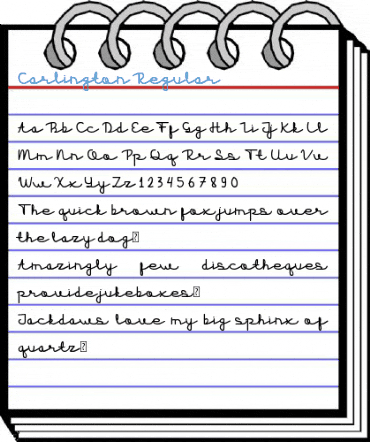 Carlington Regular
Aa Bb Cc Dd Ee Ff Gg Hh Ii Jj Kk Ll
Mm Nn Oo Pp Qq Rr Ss Tt Uu Vv
Ww Xx Yy Zz 1 2 3 4 5 6 7 8 9 0
The quick brown fox jumps over
the lazy dog
Amazingly few discotheques
provide jukeboxes
Jackdaws love my big sphinx of
quartz